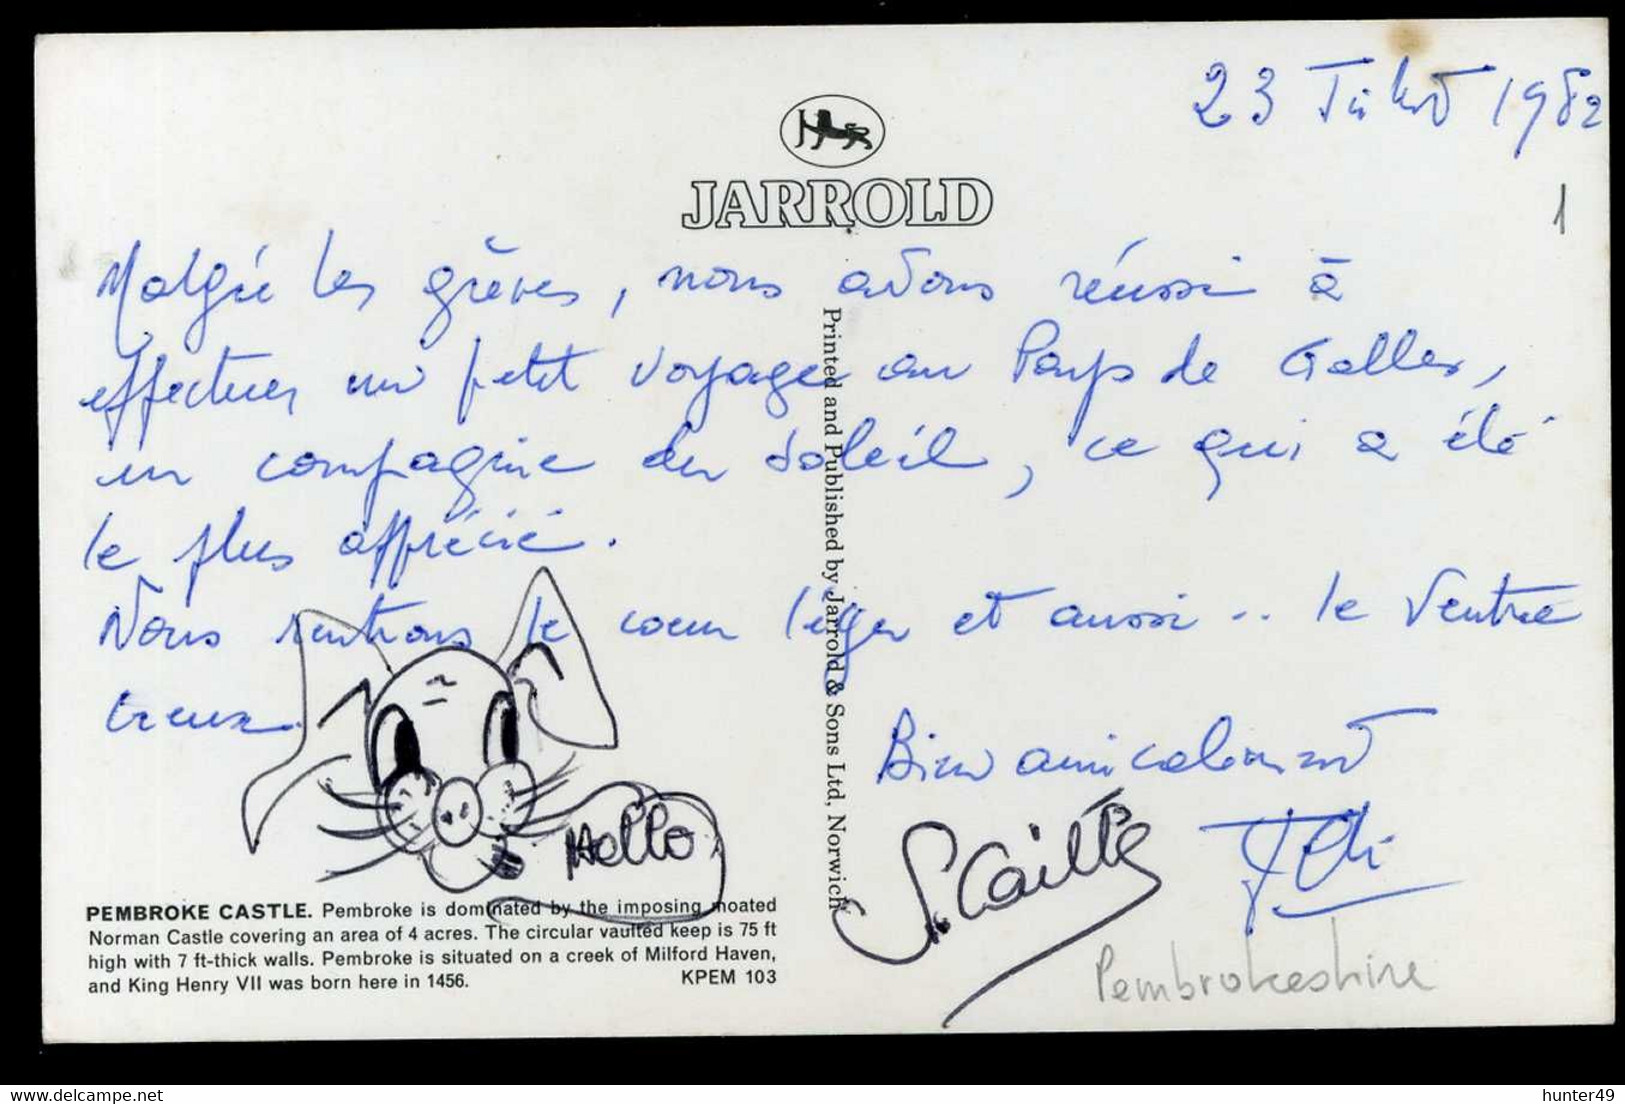 23 Juillet 1982
JARROLD
1
Malgré les grèves, nous avons réussi à
effectuer un petit voyage au Pays de Galles,
en compagnie du soleil, ce qui a été
le plus apprécié.
Nous rentrons le coeur léger et aussi .. le ventre
creux.
Bien amicalement
Hello
S. Caillté
Printed and Published by Jarrold & Sons Ltd, Norwich
PEMBROKE CASTLE. Pembroke is dominated by the imposing moated
Norman Castle covering an area of 4 acres. The circular vaulted keep is 75 ft
high with 7 ft-thick walls. Pembroke is situated on a creek of Milford Haven,
and King Henry VII was born here in 1456. KPEM 103
Pembrokeshire
delcampe.net
hunter49